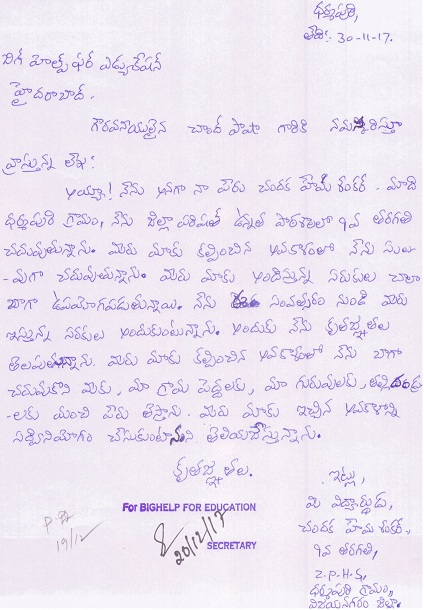 ధర్మపురి,
తేది:- 30-11-17.
బిగ్ హెల్ప్ ఫర్ ఎడ్యుకేషన్
హైదరాబాద్.
గౌరవనీయులైన చాంద్ పాషా గారికి నమస్కరిస్తూ
వ్రాస్తున్న లేఖ:
అయ్యా! నేను అనగా నా పేరు చందక హేమ శంకర్. మాది
ధర్మపురి గ్రామం, నేను జిల్లా పరిషత్ ఉన్నత పాఠశాలలో 9వ తరగతి
చదువుతున్నాను. మీరు మాకు కల్పించిన అవకాశంలో నేను సులు
-వుగా చదువుతున్నాను. మీరు మాకు అందిస్తున్న సరుకులు చాలా
బాగా ఉపయోగపడుతున్నాయి. నేను సంవత్సరం నుండి మీరు
ఇస్తున్న సరకులు అందుకుంటున్నాను. అందుకు నేను కృతజ్ఞతలు
తెలుపుతున్నాను. మీరు మాకు కల్పించిన అవకాశంలో నేను బాగా
చదువుకొని మీకు, మా గ్రామ పెద్దలకు, మా గురువులకు, తల్లిదండ్రు
-లకు మంచి పేరు తెస్తాను. మీరు మాకు ఇచ్చిన అవకాశాన్ని
సద్వినియోగం చేసుకుంటానని తెలియచేస్తున్నాను.
కృతజ్ఞతలు.
ఇట్లు,
మీ విద్యార్థుడు,
చందక హేమ శంకర్,
9వ తరగతి,
Z.P.H.S,
ధర్మపురి గ్రామం,
విజయనగరం జిల్లా.
For BIGHELP FOR EDUCATION
20/12/17
SECRETARY
19/12